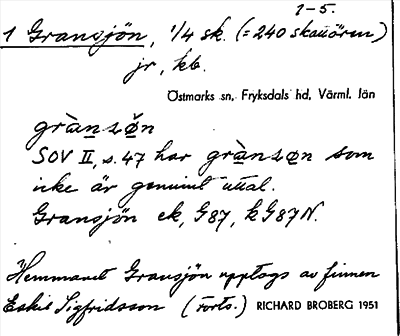 1-5.
1 Gransjön, 1/4 sk. (= 240 skattören)
jr, kb.
Östmarks sn, Fryksdals hd, Värml. län
grànsø̀n
SOV II, s. 47 har grànsøn som
icke är genuint uttal.
Gransjön ek, G87, kG87N.
Hemmanet Gransjön upptogs av finnen
Eskil Sigfridsson (forts.) RICHARD BROBERG 1951